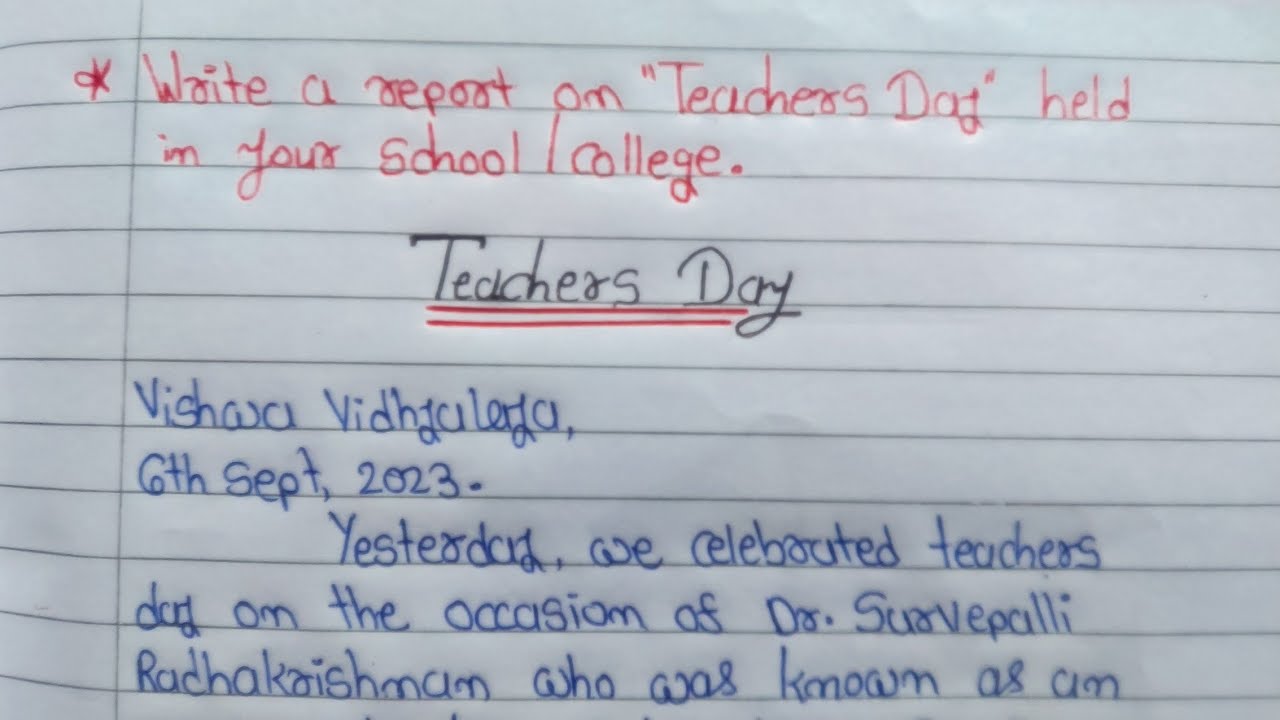 * Write a report on "Teachers Day" held
in your school/college.
Teachers Day
Vishwa Vidhyalaya,
6th Sept, 2023.
Yesterday, we celebrated teachers
day on the occasion of Dr. Survepalli
Radhakrishnan who was known as an